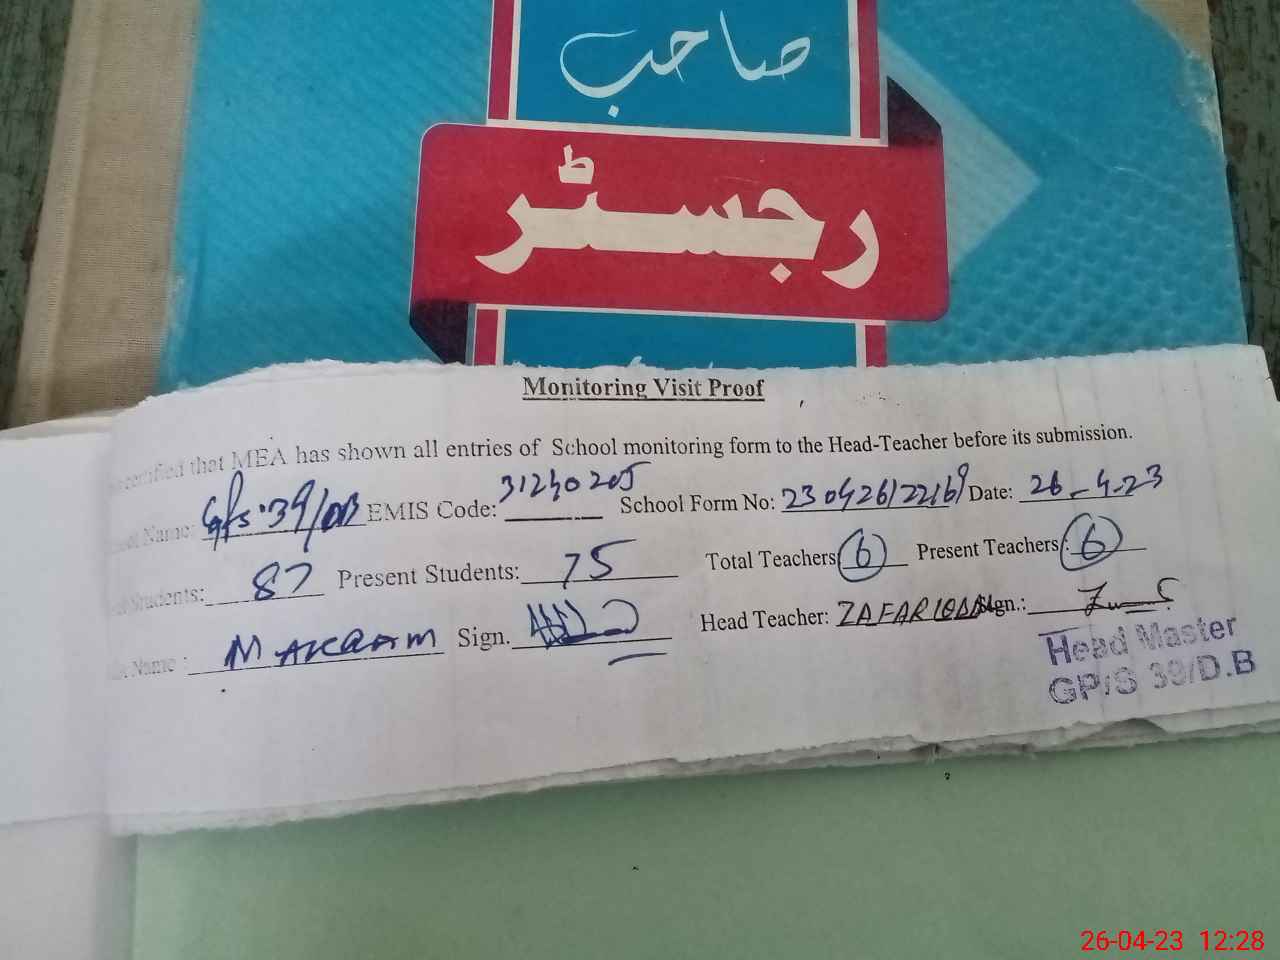 صاحب
رجسٹر
Monitoring Visit Proof
certified that MEA has shown all entries of School monitoring form to the Head-Teacher before its submission.
Name: GPS 39/DB EMIS Code: 31240205 School Form No: 230426122169 Date: 26-4-23
Students: 87 Present Students: 75 Total Teachers: 6 Present Teachers: 6
Name: M AKRAM Sign. Head Teacher: ZAFAR IQBAL Sign.:
Head Master
GP/S 39/D.B
26-04-23 12:28